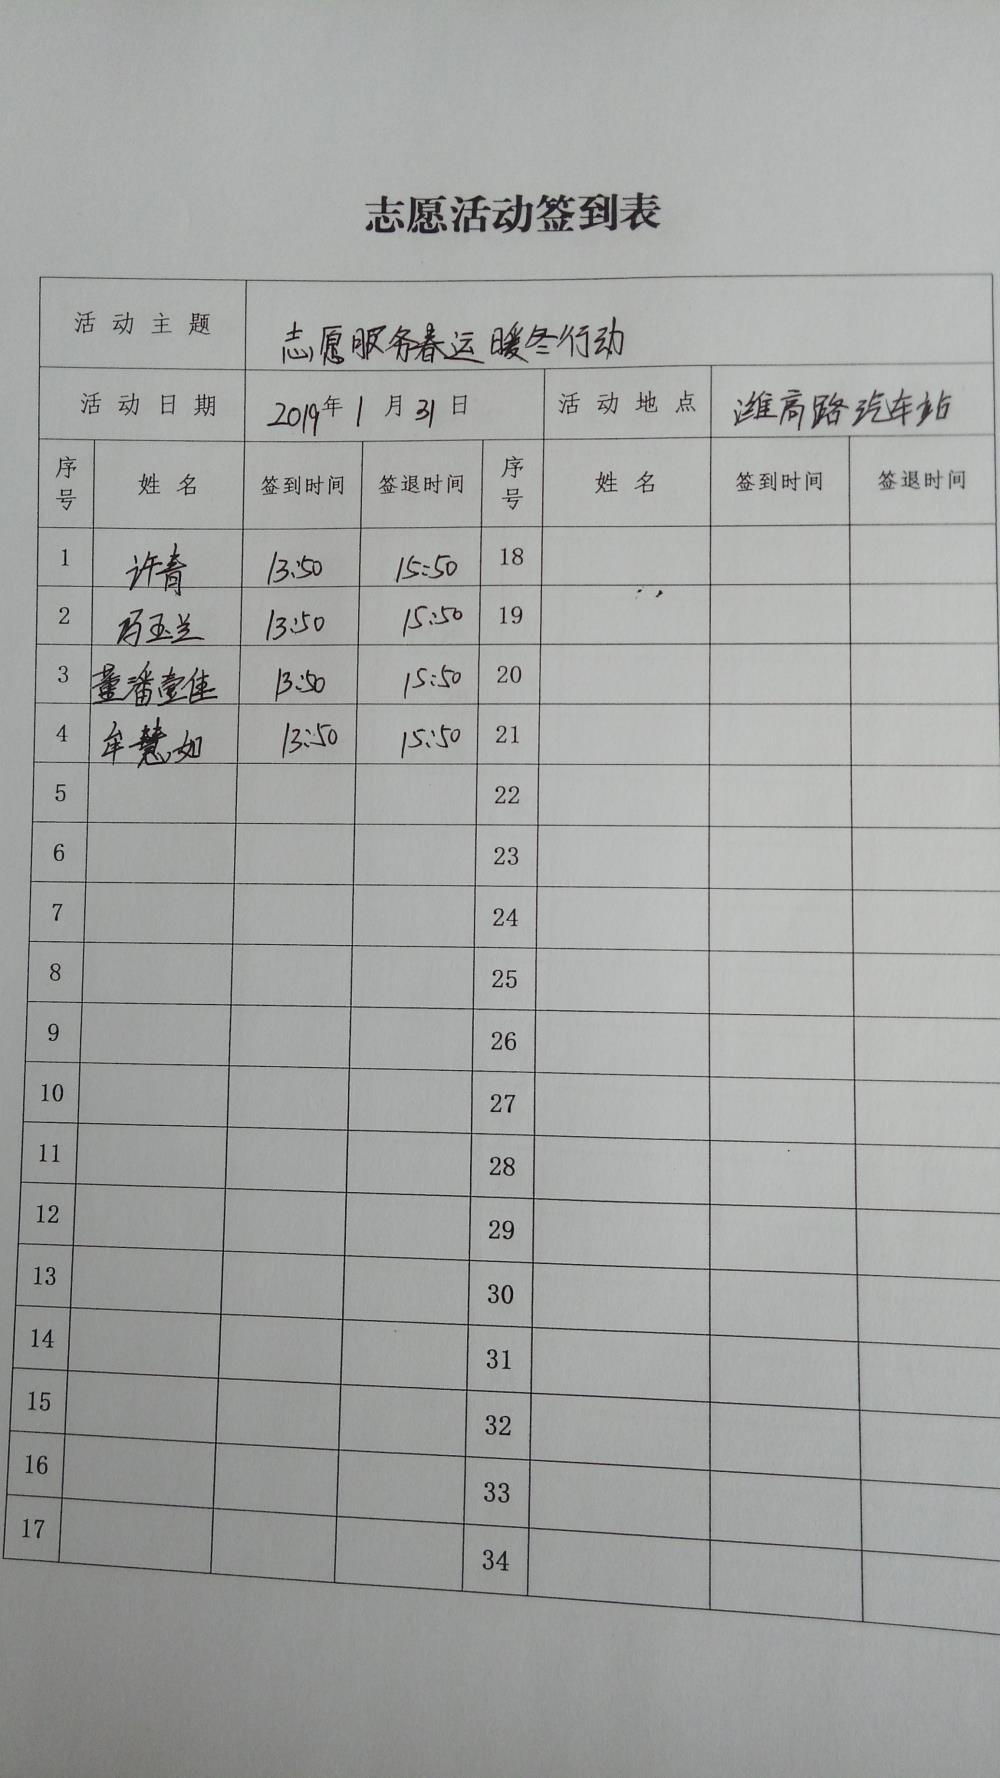 志愿活动签到表
活动主题 志愿服务春运暖冬行动
活动日期 2019年1月31日 活动地点 潍高路汽车站
序号 姓名 签到时间 签退时间 序号 姓名 签到时间 签退时间
1 许青 13:50 15:50 18
2 冯玉兰 13:50 15:50 19
3 董潘壹佳 13:50 15:50 20
4 牟慧如 13:50 15:50 21
5 22
6 23
7 24
8 25
9 26
10 27
11 28
12 29
13 30
14 31
15 32
16 33
17 34